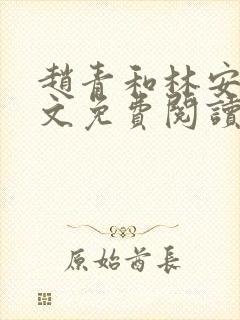 趙青和林安
文免費閱讀
原始酋長